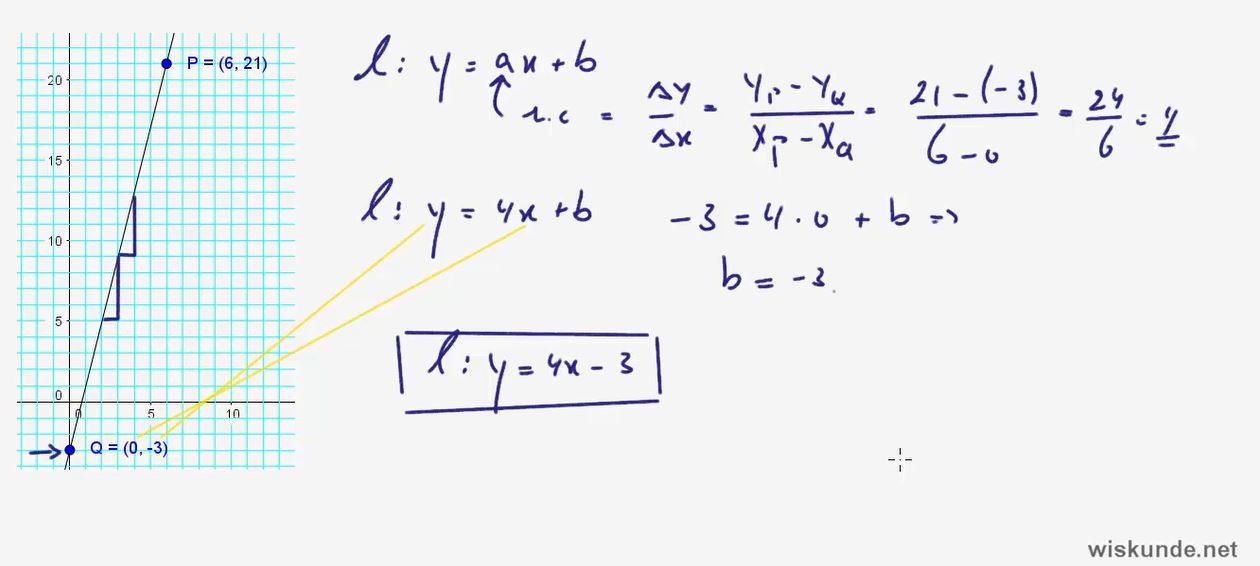 P = (6, 21)
20
15
10
5
0
0 5 10
Q = (0, -3)
l: y = ax + b
r.c = Δy/Δx = (yP - yQ)/(xP - xQ) = (21 - (-3))/(6 - 0) = 24/6 = 4
l: y = 4x + b
-3 = 4 · 0 + b =>
b = -3
l: y = 4x - 3
wiskunde.net